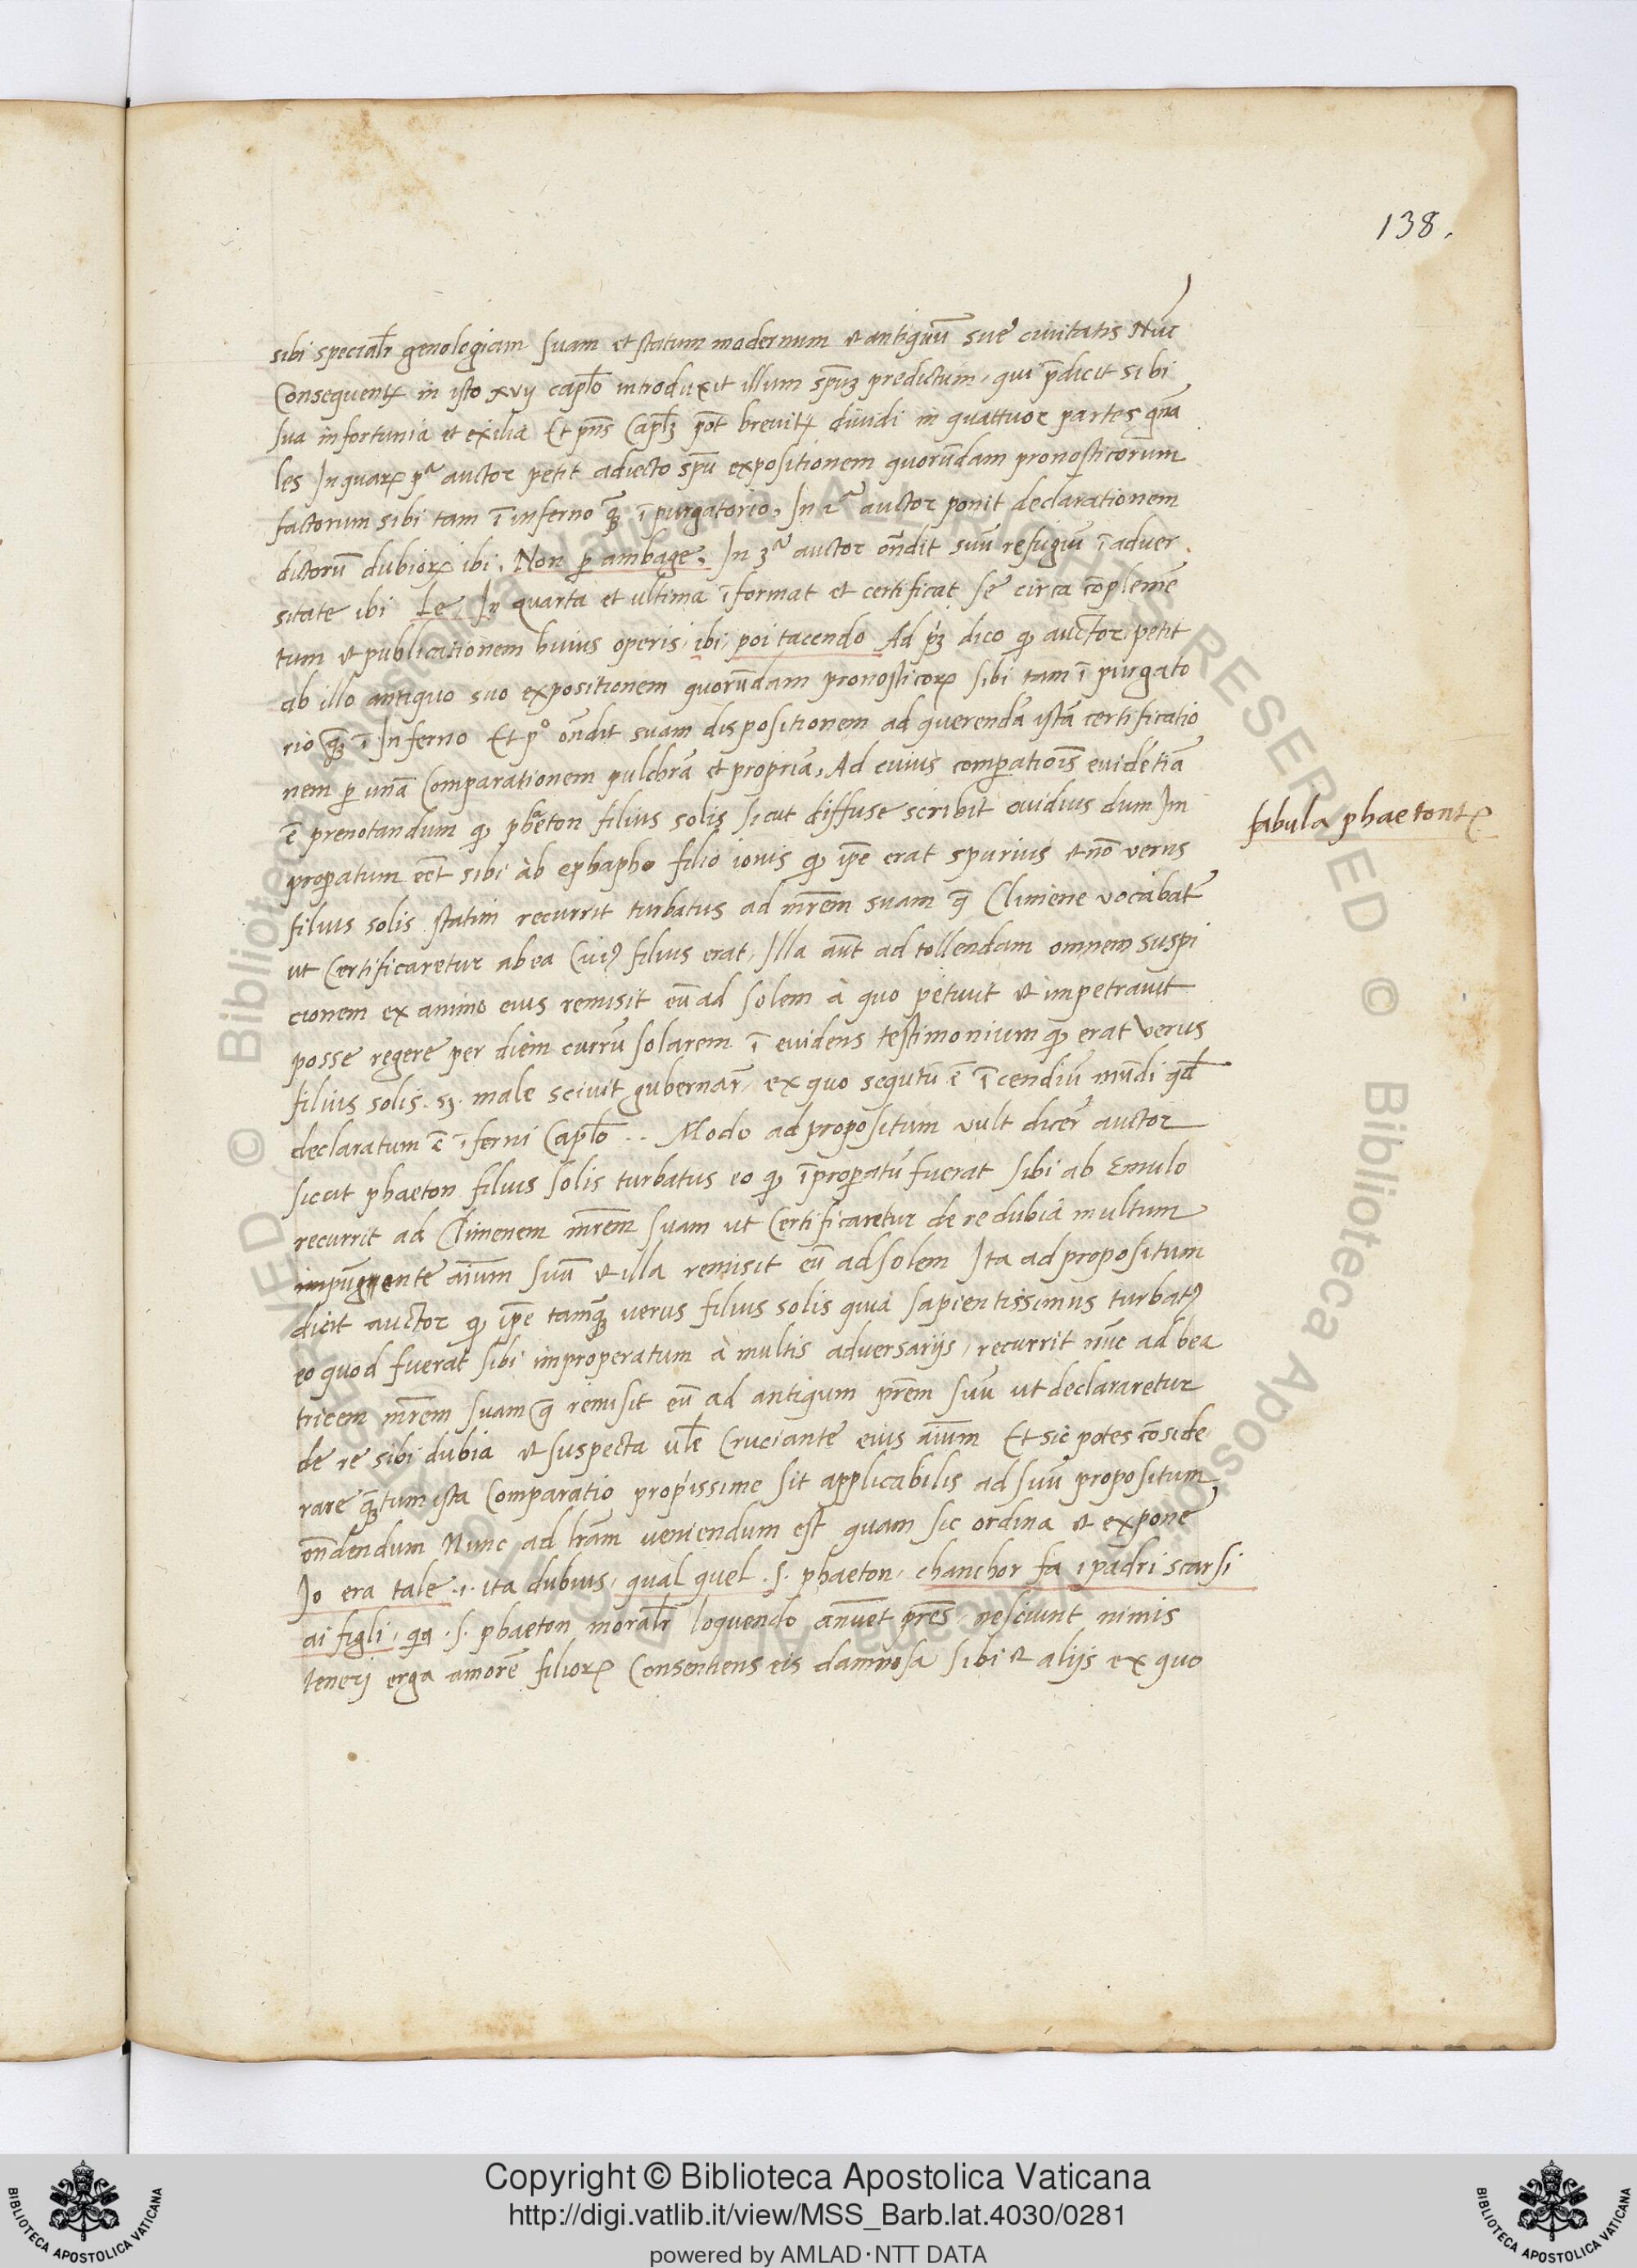 138.
sibi specialr̄ genologiam suam et statum modernum et antiquū sue ciuitatis Nūc
Consequentꝫ in isto xvij capl̄o introduxit illum spūꝫ predictum, qui p̄dicit sibi
sua infortunia et exilia Et pn̄s Capl̄ꝫ pōt breuitꝫ diuidi in quattuor partes gn̄a
les In quaꝝ pᵃ auctor petit adicto spū expositionem quorūdam pronosticorum
factorum sibi tam ī inferno qꝫ ī purgatorio, In 2ᵃ auctor ponit declarationem
dictorū dubioꝝ ibi, Non ꝑ ambage, In 3ᵃ auctor on̄dit suū refugiū ī aduer
sitate ibi Le In quarta et ultima īformat et certificat se circa cōplemē
tum et publicationem huius operis, ibi, poi tacendo Ad pꝫ dico qꝫ auctor petit
ab illo antiquo suo expositionem quorūdam pronosticoꝝ sibi tam ī purgato
rio qꝫ ī Inferno Et pº on̄dit suam dispositionem ad querendā istā certificatio
nem ꝑ unā Comparationem pulchrā et propriā, Ad cuius comꝑatiōis euidētiā
ē prenotandum qꝫ phēton filius solis sicut diffuse scribit ouidius dum Im
proꝑatum eēt sibi ab ephapho filio iouis qꝫ ip̄e erat spurius et nō verus
filius solis statim recurrit turbatus ad mr̄em suam q̄ Climene vocabat̄
ut Certificaretur ab ea Cuiꝰ filius erat, Illa aūt ad tollendam omnem suspi
cionem ex animo eius remisit eū ad solem à quo petiuit et impetrauit
posse regere per diem currū solarem ī euidens testimonium qꝫ erat verus
filius solis. sꝫ. male sciuit gubernar̄, ex quo segutū ē īcendiū mūdi qd̄
declaratum ē īferni Capl̄o .. Modo ad propositum vult dicer̄ auctor
sicut phaeton filius solis turbatus eo qꝫ īproꝑatū fuerat sibi ab Emulo
recurrit ad Climenem mr̄em suam ut Certificaretur de re dubia multum
impūgnante aīum suū et illa remisit eū ad solem Ita ad propositum
dicit auctor qꝫ ip̄e tamqꝫ verus filius solis quia sapientissimus turbatꝰ
eo quod fuerat sibi improperatum à multis adversarijs, recurrit nūc ad bea
tricem mr̄em suam q̄ remisit eū ad antiqum pr̄em suū ut declararetur
de re sibi dubia et suspecta ul̄e Cruciante eius aīum Et sic potes cōside
rare qꝫtum ista Comparatio prop̄issime sit applicabilis ad suū propositum
on̄dendum Nunc ad lr̄am veniendum est quam sic ordina et expone
Io era tale .i. ita dubius, qual quel .s. phaeton, chanchor fa i padri scarsi
ai figli, qa .s. phaeton moralr̄ loquendo an̄uet pr̄es, nesciunt nimis
teneri erga amorē filioꝝ Consentiens eis damnosa sibi et alijs ex quo
fabula phaetontꝭ
Copyright © Biblioteca Apostolica Vaticana
http://digi.vatlib.it/view/MSS_Barb.lat.4030/0281
powered by AMLAD·NTT DATA
BIBLIOTECA APOSTOLICA VATICANA
BIBLIOTECA APOSTOLICA VATICANA